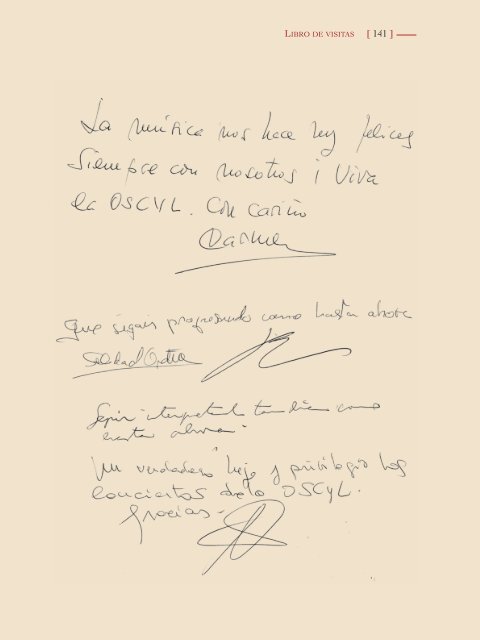 LIBRO DE VISITAS [ 141 ]
La música nos hace muy felices
Siempre con nosotros ¡ Viva
la OSCYL. Con cariño
Carmen
Que sigais progresando como hasta ahora
Soledad
Seguir interpretando tan bien como
hasta ahora.
Un verdadero lujo y privilegio los
conciertos de la OSCyL.
Gracias.